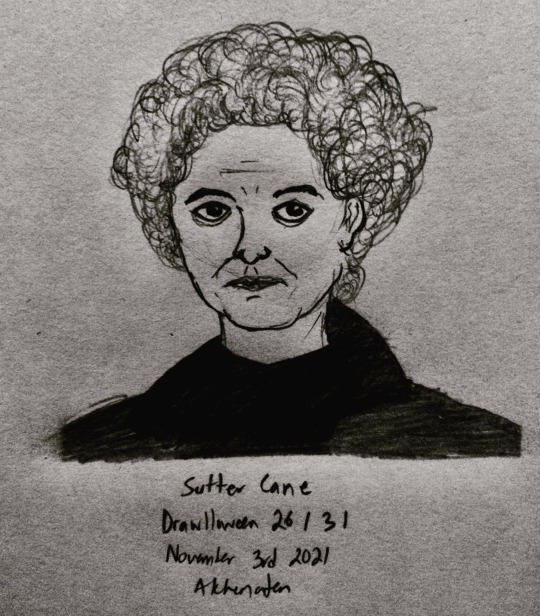 Sutter Cane
Drawlloween 26/31
November 3rd 2021
Akhenaten